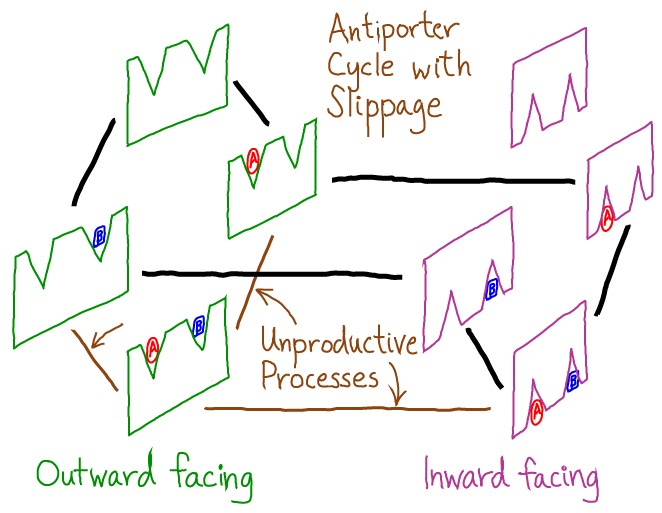 Antiporter
Cycle with
Slippage
A
A
B
B
A
B
Unproductive
Processes
A
B
Outward facing
Inward facing